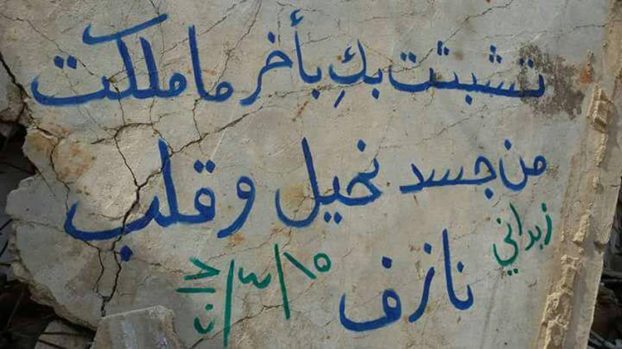 تشبثت بكِ بأخر ما ملكت
من جسد نحيل و قلب
نازف
زبداني
١٥/٣/